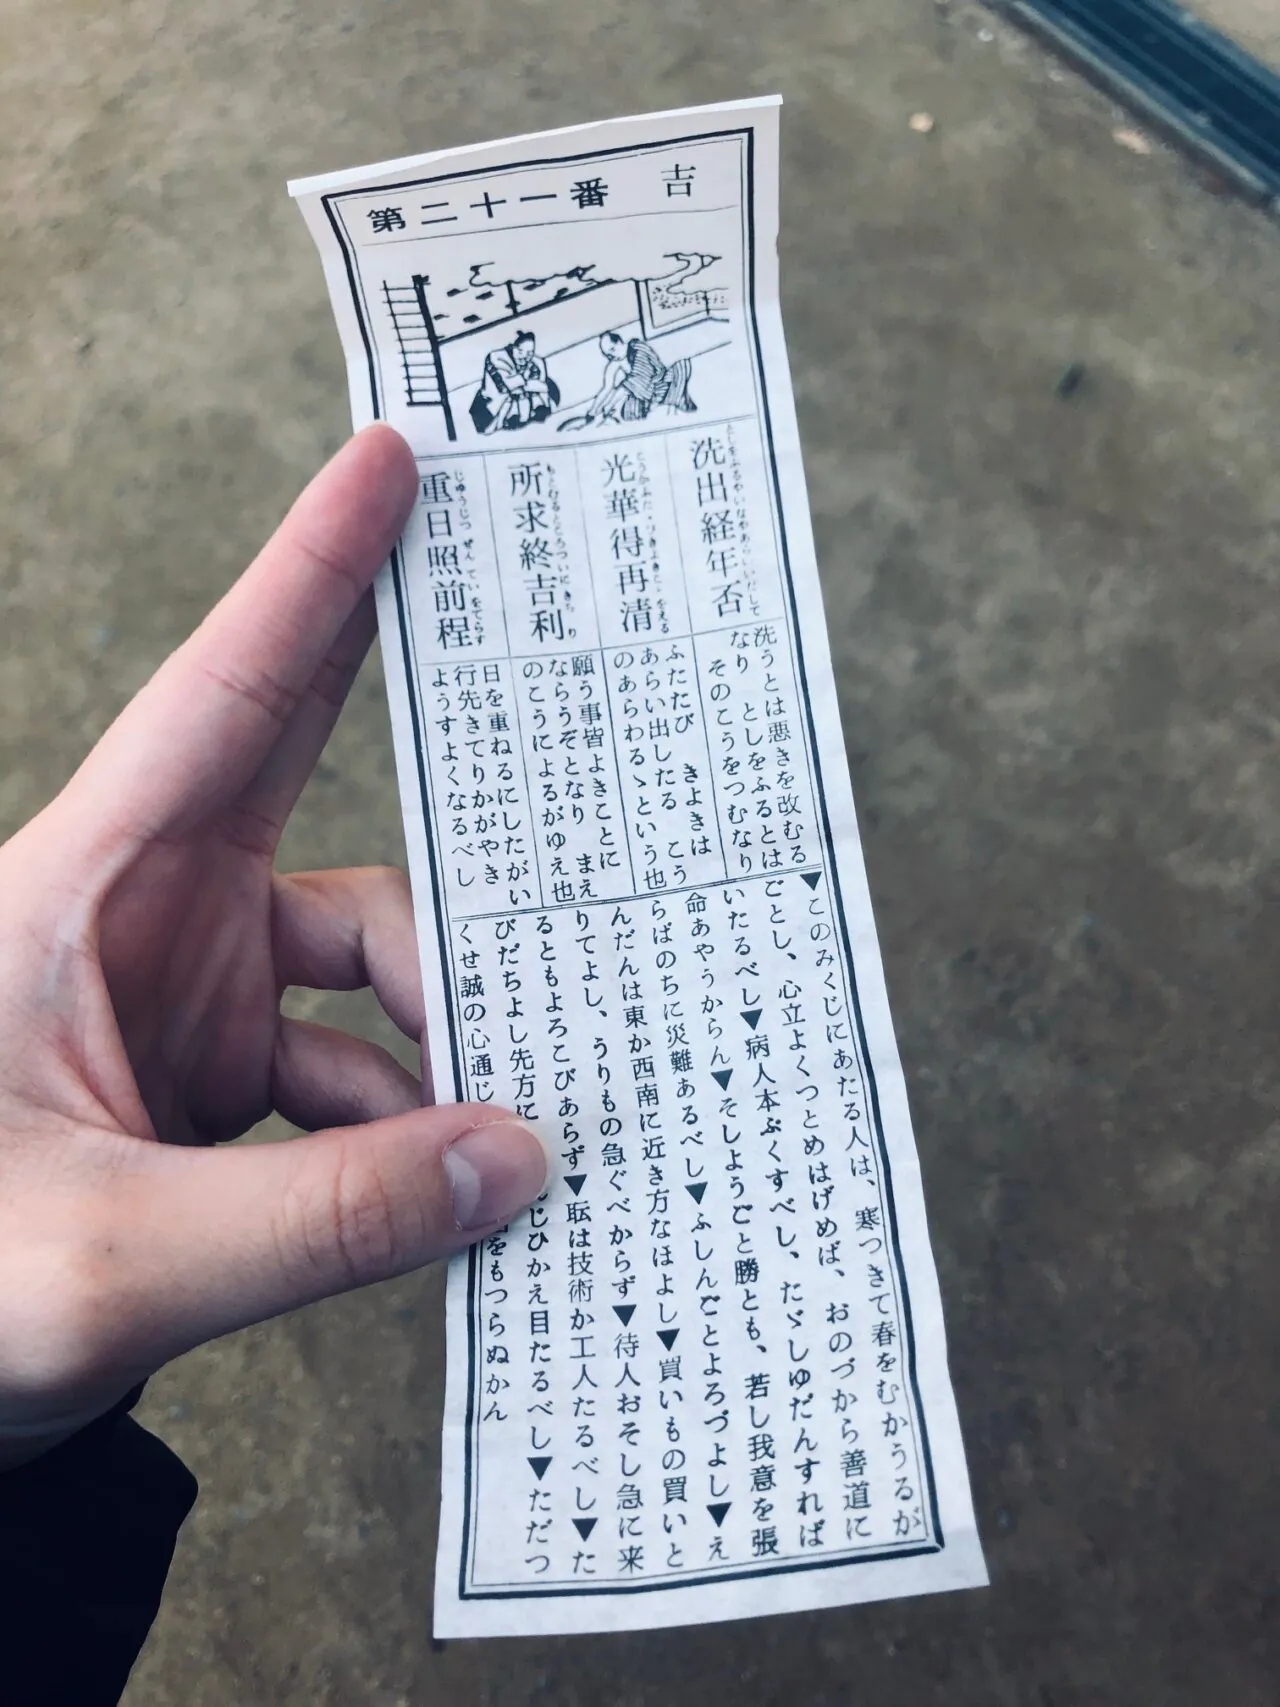 第二十一番 吉
洗出経年否
としをふるやいなやあらいいだして
光華得再清
所求終吉利
もとむるところついにきちり
重日照前程
じゅうじつぜんていをてらす
洗うとは悪きを改むる
なり としをふるとは
そのこうをつむなり
ふたたび きよきは
あらい出したる こう
のあらわるゝという也
願う事皆よきことに
ならうぞとなり まえ
のこうによるがゆえ也
日を重ねるにしたがい
行先きてりかがやき
ようすよくなるべし
▼このみくじにあたる人は、寒つきて春をむかうるが
ごとし、心立よくつとめはげめば、おのづから善道に
いたるべし▼病人本ぷくすべし、たゞしゆだんすれば
命あやうからん▼そしようごと勝とも、若し我意を張
らばのちに災難あるべし▼ふしんごとよろづよし▼え
んだんは東か西南に近き方なほよし▼買いもの買いと
りてよし、うりもの急ぐべからず▼待人おそし急に来
るともよろこびあらず▼転は技術か工人たるべし▼た
びだちよし先方に んじひかえ目たるべし▼ただつ
くせ誠の心通じ をもつらぬかん